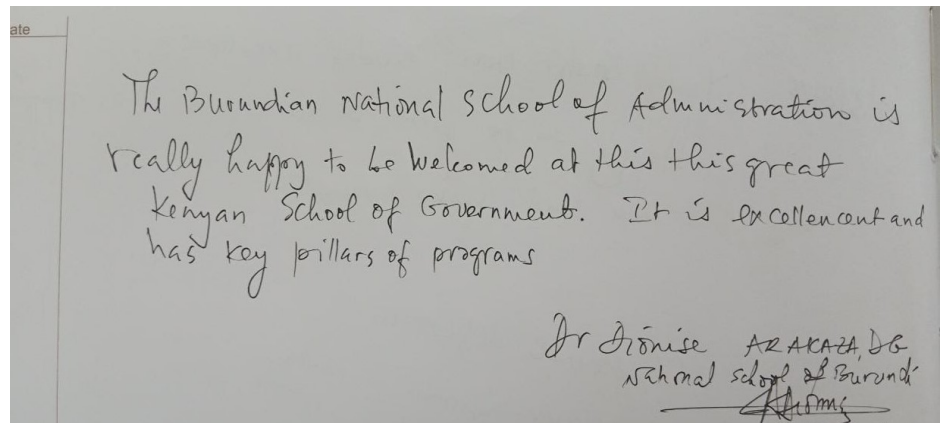 ate
The Burundian National School of Administration is
really happy to be welcomed at this this great
Kenyan School of Government. It is excellencent and
has key pillars of programs
Dr Dionise ARAKAZA, DG
National school of Burundi